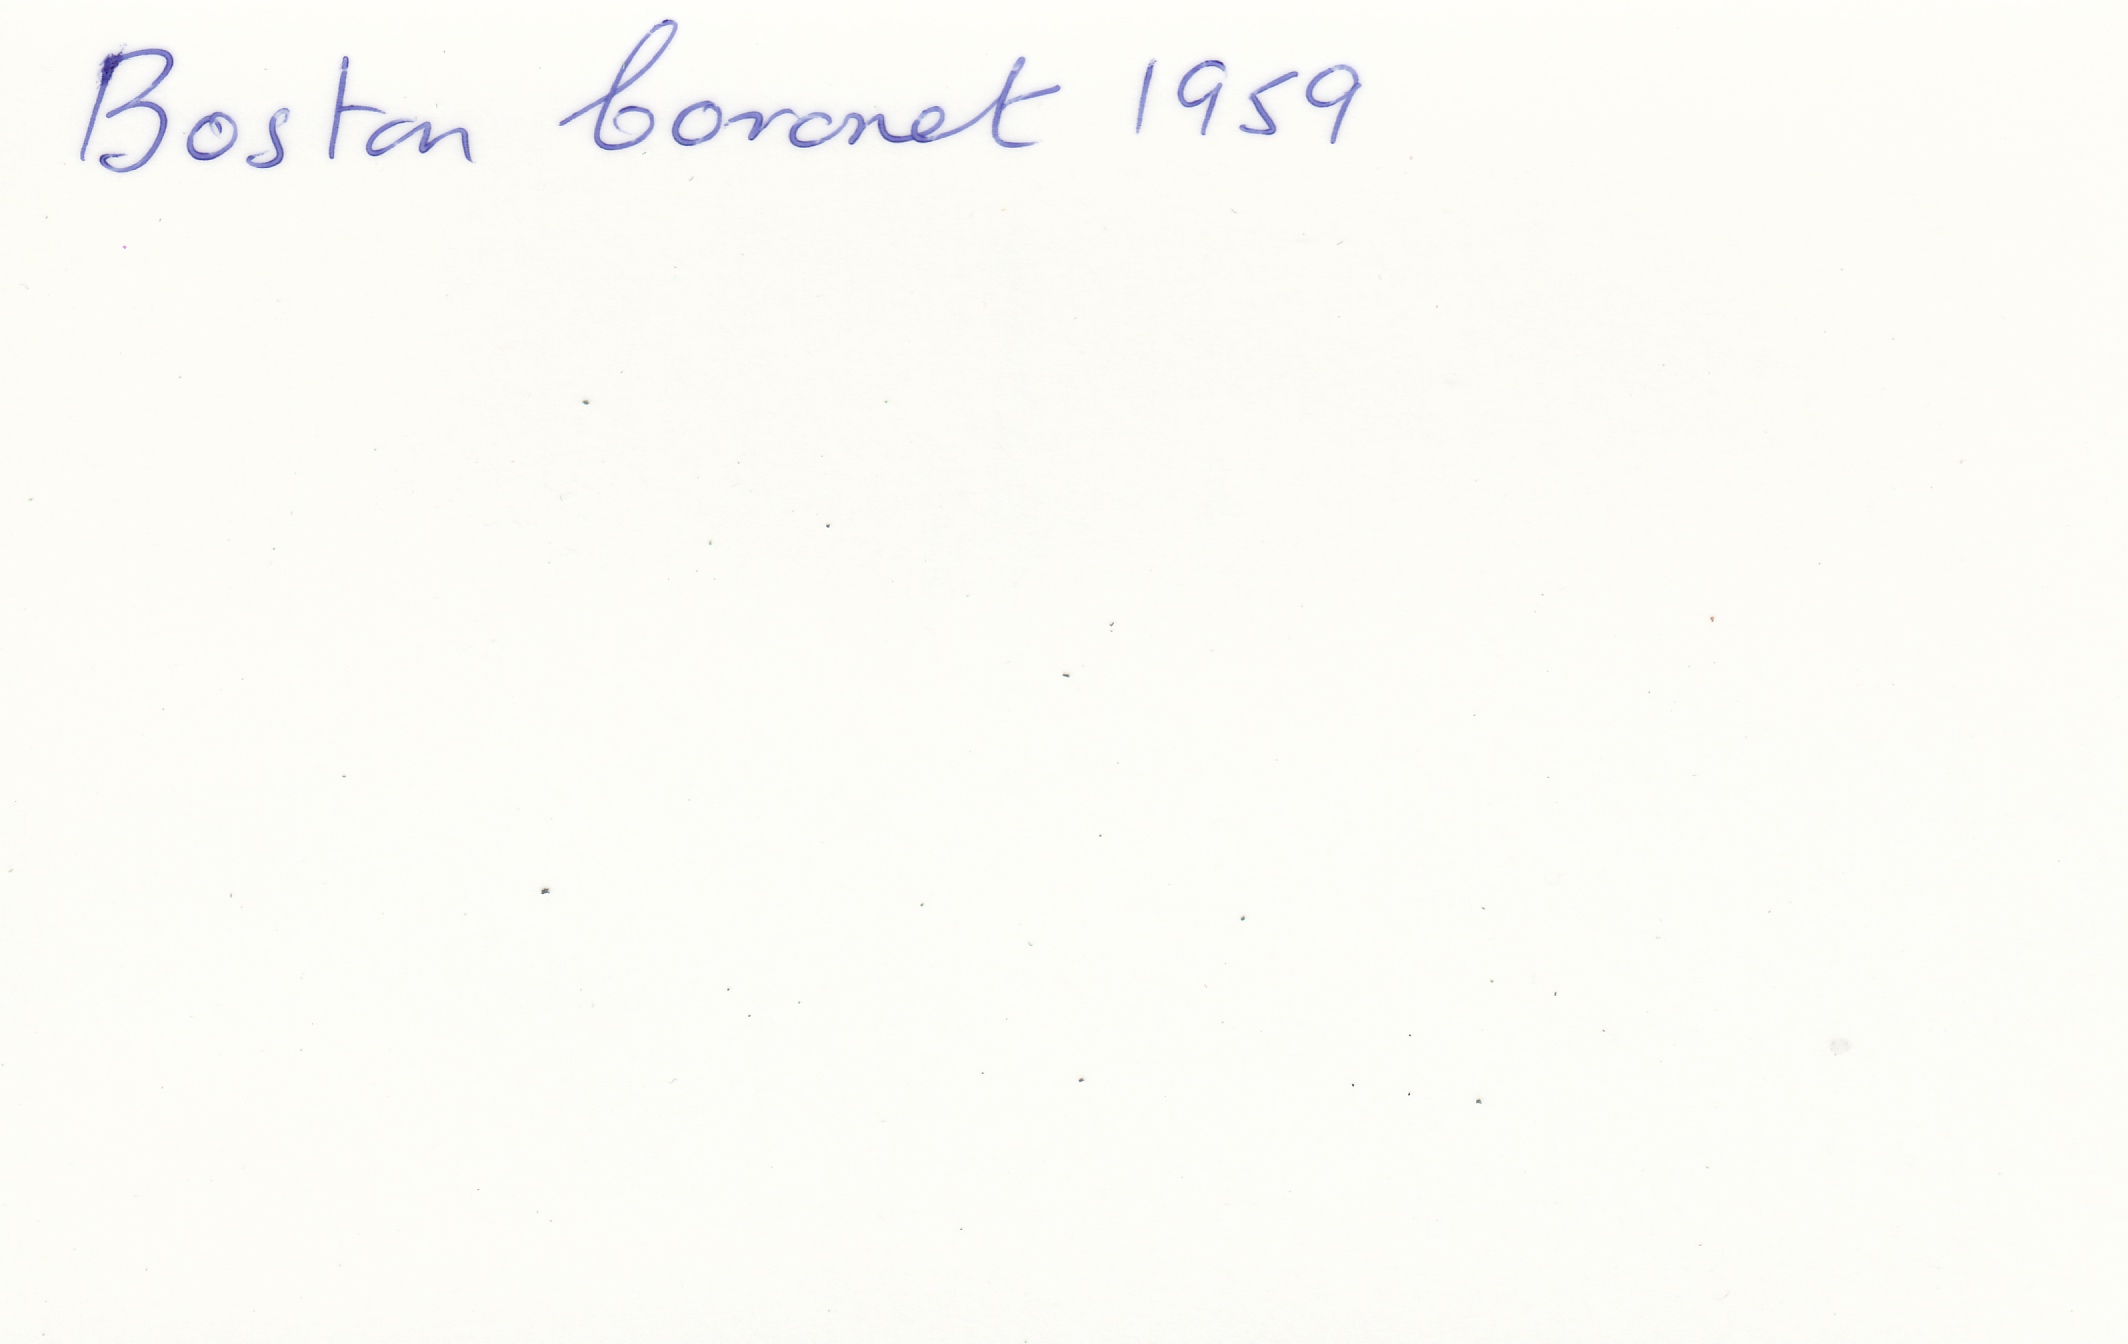 Boston Coronet 1959